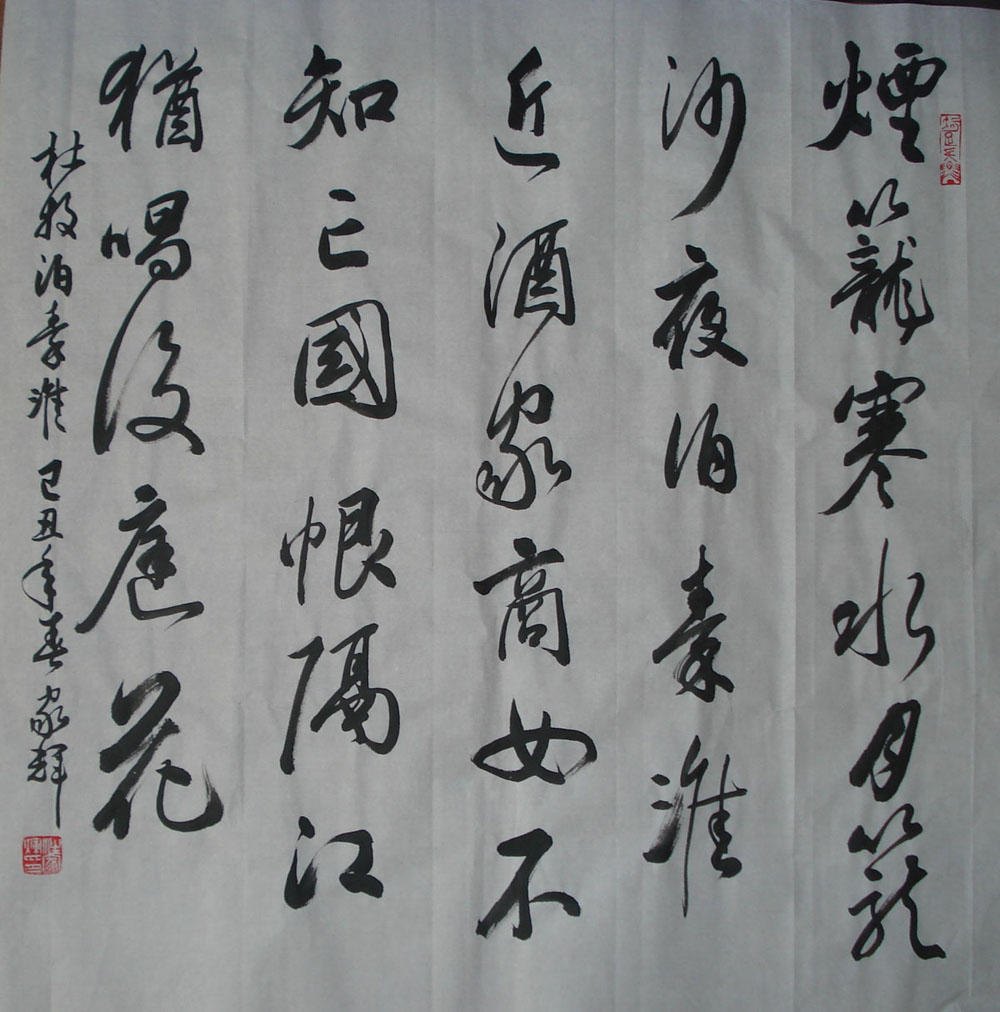 煙籠寒水月籠
沙夜泊秦淮
近酒家商女不
知亡國恨隔江
猶唱後庭花
杜牧泊秦淮己丑年春家輝